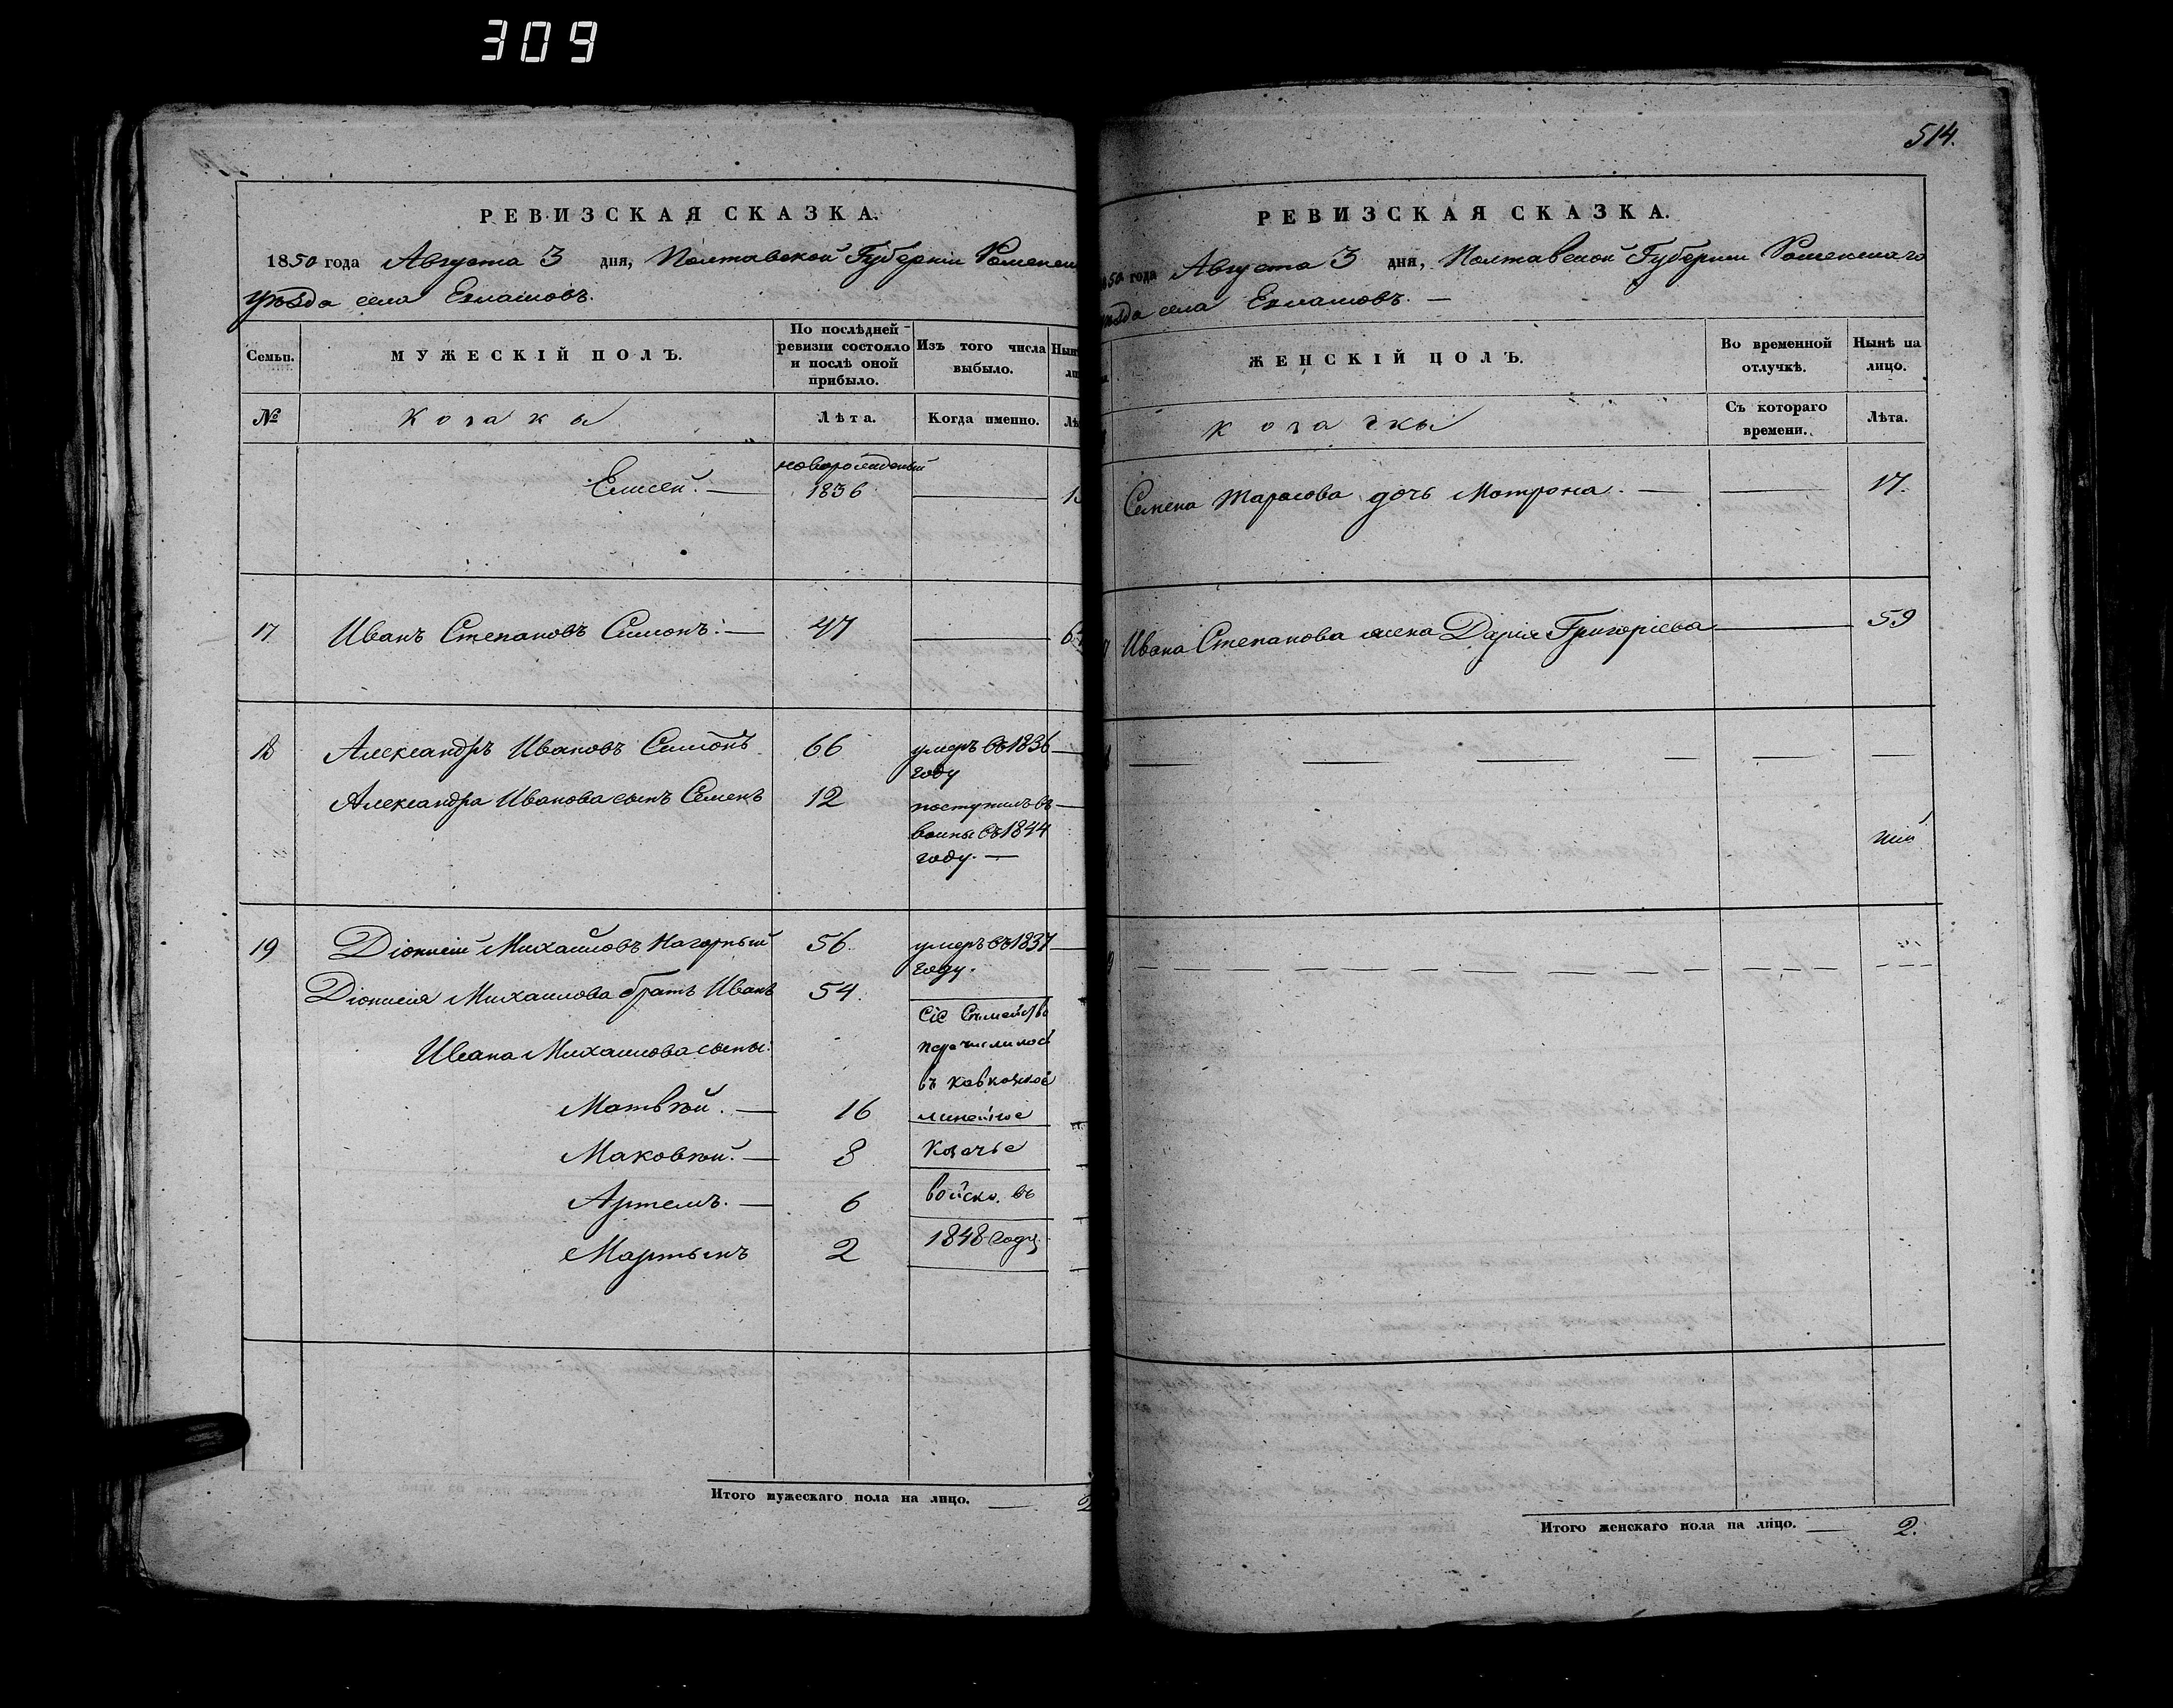 309
РЕВИЗСКАЯ СКАЗКА.
1850 года Августа 3 дня, Полтавской Губерніи Роменск
уѣзда села Ехмашовъ.
Семьи.
МУЖЕСКІЙ ПОЛЪ.
По послѣдней ревизіи состояло и послѣ оной прибыло.
Изъ того числа выбыло.
№
Козаки
Лѣта.
Когда именно.
Елисей. —
новорожденный
1836
17 Иванъ Степановъ Симонъ. — 47
18 Александръ Ивановъ Симонъ 66 умеръ въ 1836
году
Александра Иванова сынъ Семенъ 12 поступилъ въ
воины въ 1844
году. —
19 Діонисій Михайловъ Нагорный 56. умеръ въ 1837
году.
Діонисія Михаилова братъ Иванъ 54.
Сіе Съмейство
Ивана Михаилова сыны: перечислилось
въ кавказкое
Матвѣй. — 16 линейное
Маковѣй. — 8 Козачье
Артемъ. — 6 войско. въ
Мартынъ 2 1848 году.
Итого мужескаго пола на лицо. —
514.
РЕВИЗСКАЯ СКАЗКА.
1850 года Августа 3 дня, Полтавской Губерніи Роменскаго
уѣзда села Ехмашовъ. —
ЖЕНСКІЙ ПОЛЪ.
Во временной отлучкѣ.
Нынѣ на лицо.
Козачки
Съ котораго времени.
Лѣта.
Семена Тарасова дочь Мотрона. — 17.
Ивана Степанова жена Дарія Григоріева 59
Итого женскаго пола на лицо. — 2.